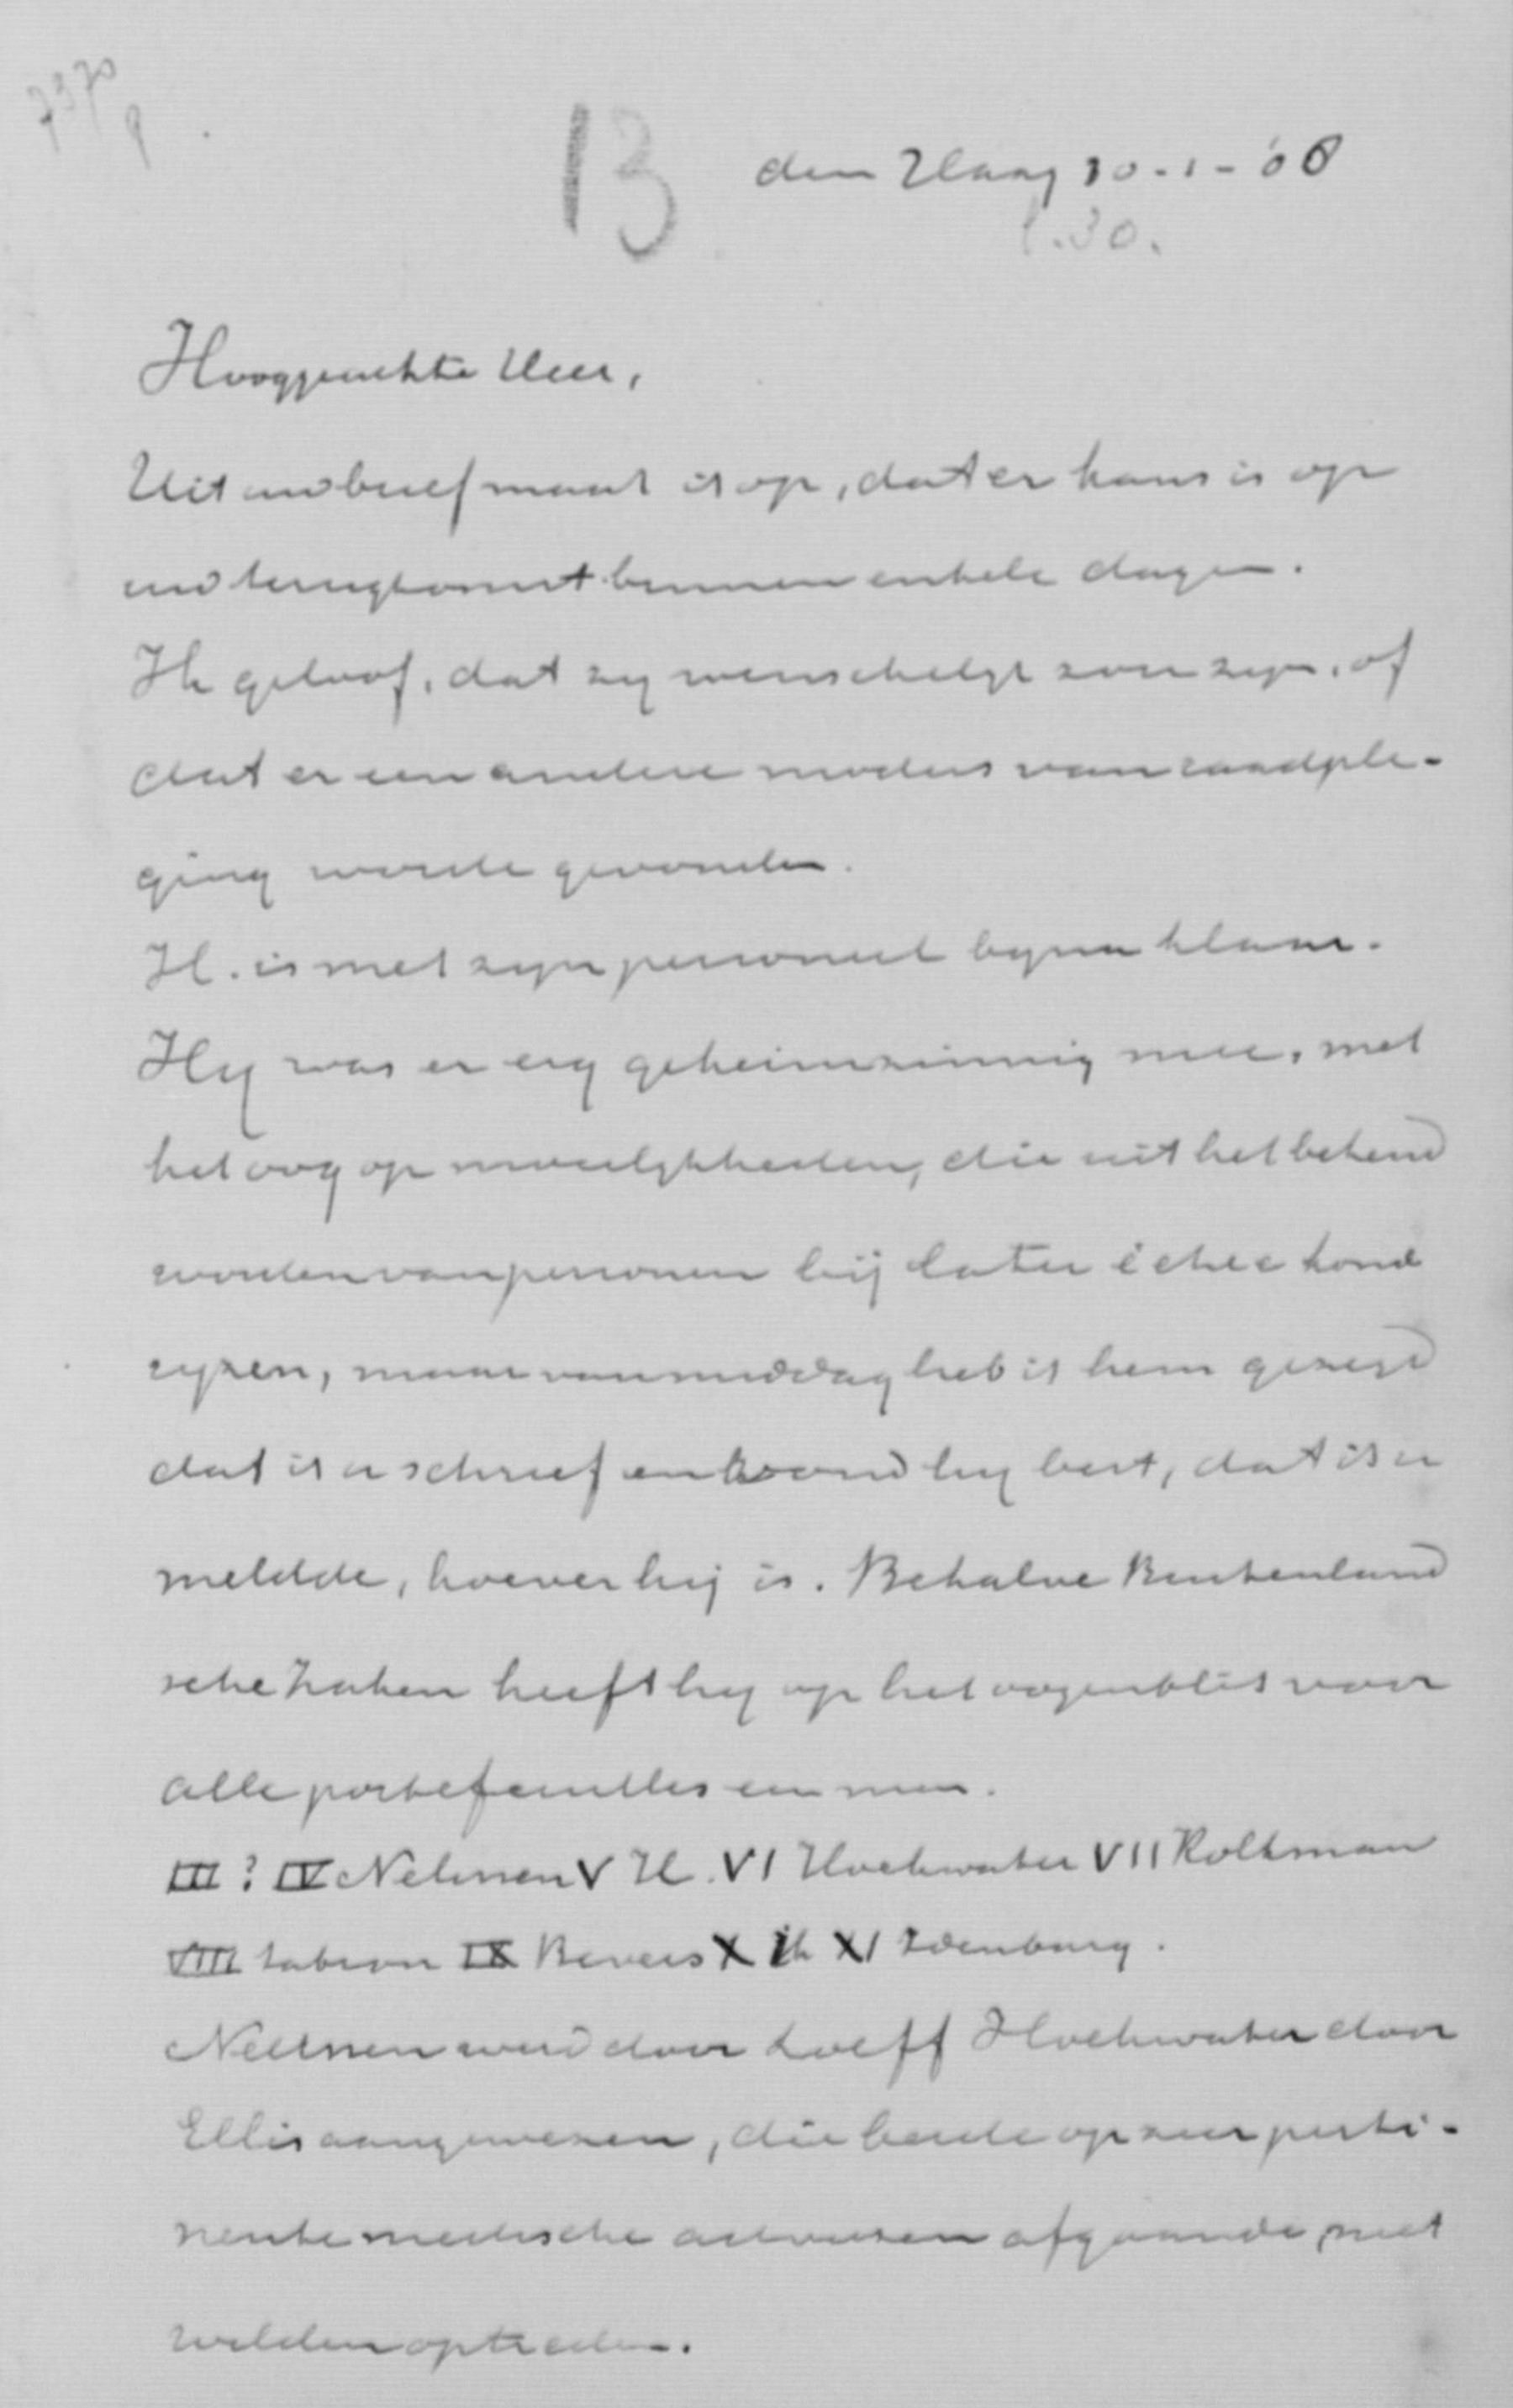 7370
9
13 den Haag 30-1-'08
l.30.
Hooggeachte Heer,
Uit uw brief maak ik op, dat er kans is op
uw terugkomst binnen enkele dagen.
Ik geloof, dat zy wenschelyk zou zyn, of
dat er een andere modus van raadple-
ging worde gevonden.
H. is met zyn personeel byna klaar.
Hy was er erg geheimzinnig mee, met
het oog op moeilykheden, die uit het bekend
worden van personen bij later échec kond
ryzen, maar vanmiddag heb ik hem gezegd
dat ik u schreef en vond hy best, dat ik u
meldde, hoever hij is. Behalve Buitenland
sche Zaken heeft hy op het oogenblik voor
alle portefeuilles een man.
III? IV Nelissen V H. VI Hoekwater VII Kolkman
VIII Sabron IX Bevers X ik XI Idenburg.
Nelissen werd door Loeff Hoekwater door
Ellis aangewezen, die beide op zeer perti-
nente medische adviezen afgaande niet
wilden optreden.